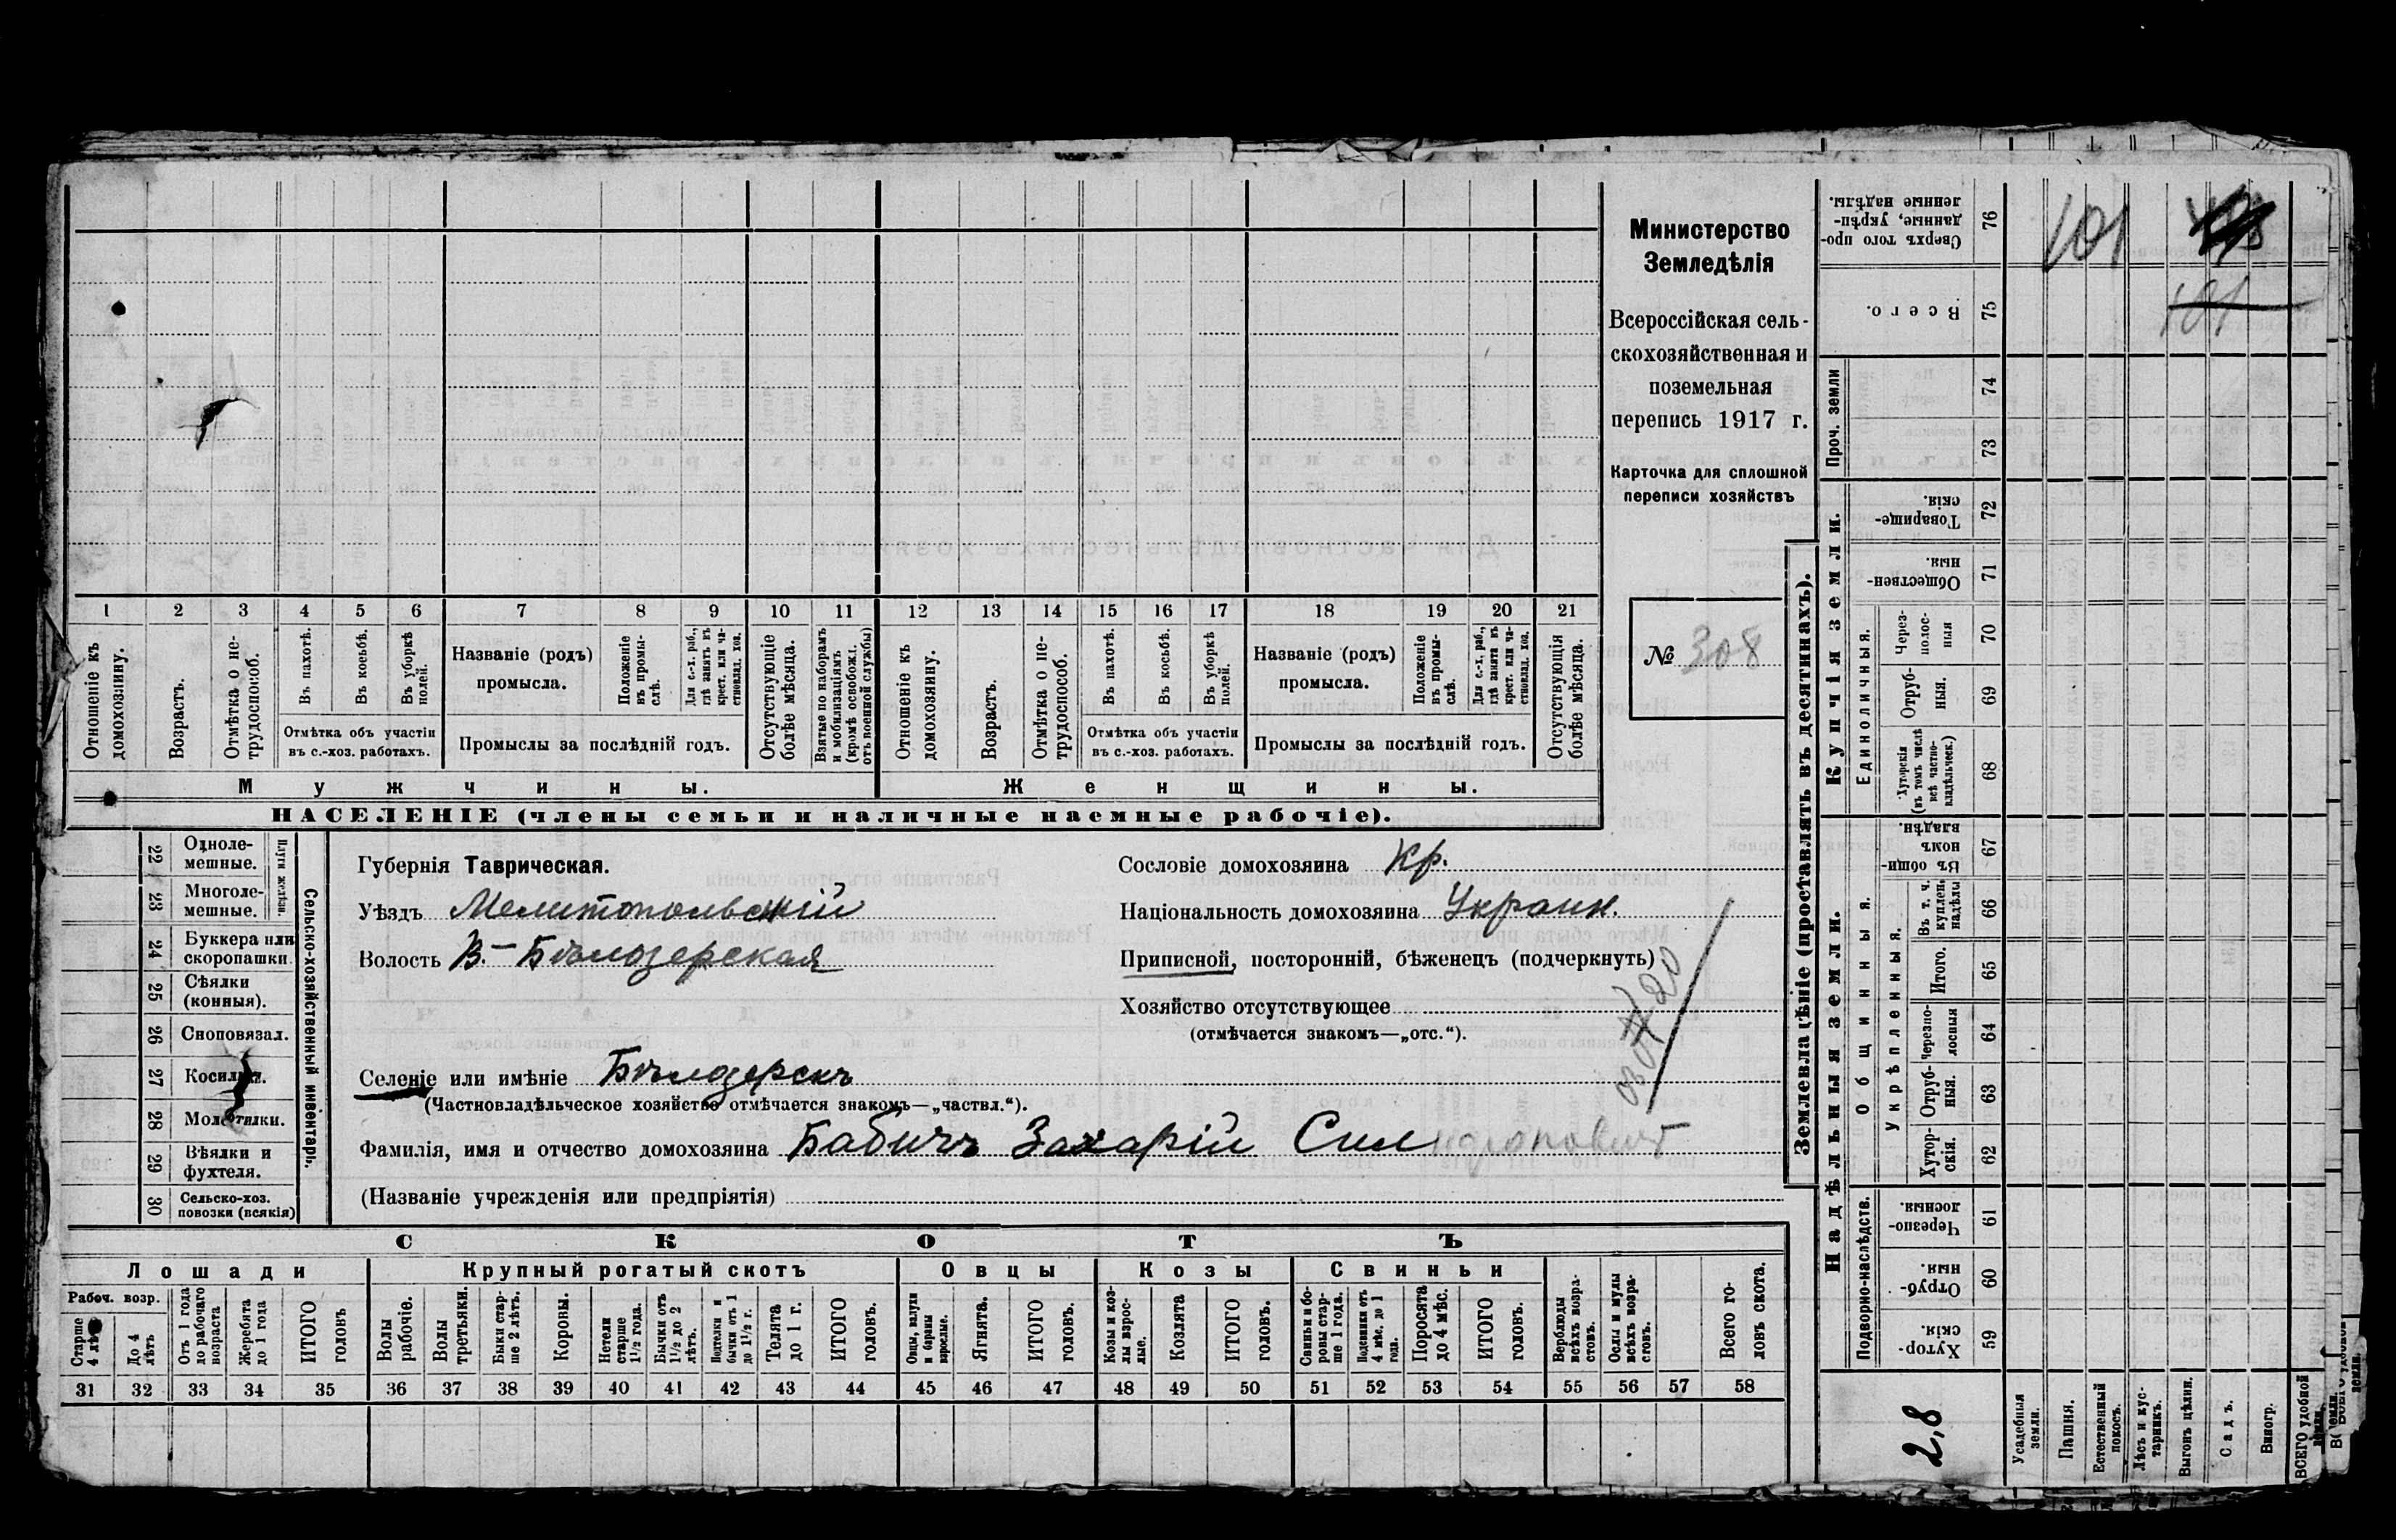 Министерство
Земледѣлія
Всероссійская сель-
скохозяйственная и
поземельная
перепись 1917 г.
Карточка для сплошной
переписи хозяйствъ
№ 308
1 2 3 4 5 6 7 8 9 10 11 12 13 14 15 16 17 18 19 20 21
Отношеніе къ домохозяину.
Возрастъ.
Отмѣтка о не-трудоспособ.
Въ пахотѣ.
Въ косьбѣ.
Въ уборкѣ полей.
Отмѣтка объ участіи
въ с.-хоз. работахъ.
Названіе (родъ)
промысла.
Положеніе въ промы-слѣ.
Для с.-х. раб., гдѣ занятъ въ крест. или ча-стновлад. хоз.
Промыслы за послѣдній годъ.
Отсутствующіе болѣе мѣсяца.
Взятые по наборамъ и мобилизаціямъ (кромѣ освобожд. отъ военной службы)
Отношеніе къ домохозяину.
Возрастъ.
Отмѣтка о не-трудоспособ.
Въ пахотѣ.
Въ косьбѣ.
Въ уборкѣ полей.
Отмѣтка объ участіи
въ с.-хоз. работахъ.
Названіе (родъ)
промысла.
Положеніе въ промы-слѣ.
Для с.-х. раб., гдѣ занята въ крест. или ча-стновлад. хоз.
Промыслы за послѣдній годъ.
Отсутствующія болѣе мѣсяца.
Мужчины. Женщины.
НАСЕЛЕНІЕ (члены семьи и наличные наемные рабочіе).
Сельско-хозяйственный инвентарь.
Плуги желѣзн.
22 Одноле-мешные.
23 Многоле-мешные.
24 Буккера или скоропашки.
25 Сѣялки (конныя).
26 Сноповязал.
27 Косилки.
28 Молотилки.
29 Вѣялки и фухтеля.
30 Сельско-хоз. повозки (всякія)
Губернія Таврическая.
Уѣздъ Мелитопольскій
Волость В.-Бѣлозерская
Сословіе домохозяина Кр.
Національность домохозяина Украин.
Приписной, посторонній, бѣженецъ (подчеркнуть)
Хозяйство отсутствующее
(отмѣчается знакомъ—„отс.“).
Селеніе или имѣніе Бѣлозерскъ
(Частновладѣльческое хозяйство отмѣчается знакомъ—„частвл.“).
Фамилія, имя и отчество домохозяина Бабичъ Захарій
(Названіе учрежденія или предпріятія)
СКОТЪ
Лошади Крупный рогатый скотъ Овцы Козы Свиньи
Рабоч. возр.
Старше 4 лѣтъ
До 4 лѣтъ
Отъ 1 года до рабочаго возраста
Жеребята до 1 года
ИТОГО головъ
Волы рабочіе.
Волы третьяки.
Быки стар-ше 2 лѣтъ.
Коровы.
Нетели старше 1½ года.
Бычки отъ 1½ до 2 лѣтъ.
Подтелки и бычки отъ 1 до 1½ г.
Телята до 1 г.
ИТОГО головъ.
Овцы, валухи и бараны взрослые.
Ягнята.
ИТОГО головъ.
Козы и коз-лы взрос-лые.
Козлята
ИТОГО головъ.
Свиньи и бо-ровы стар-ше 1 года.
Подсвинки отъ 4 мѣс. до 1 года.
Поросята до 4 мѣс.
ИТОГО головъ.
Верблюды всѣхъ возра-стовъ.
Ослы и мулы всѣхъ возра-стовъ.
Всего го-ловъ скота.
31 32 33 34 35 36 37 38 39 40 41 42 43 44 45 46 47 48 49 50 51 52 53 54 55 56 57 58
Землевладѣніе (проставлять въ десятинахъ).
Надѣльныя земли. Купчія земли. Проч. земли
Подворно-наслѣдств.
Общинныя.
Укрѣпленныя.
Единоличныя.
Хутор-скія. 59
Отруб-ныя. 60
Черезпо-лосныя. 61
Хутор-скія. 62
Отруб-ныя. 63
Черезпо-лосныя 64
Итого. 65
Въ т. ч. куплен. надѣлы 66
Въ общин-номъ владѣн. 67
Хуторскія (въ томъ числѣ всѣ частно-владѣльческ.) 68
Отруб-ныя. 69
Через-полос-ныя 70
Обществен-ныя. 71
Товарище-скія. 72
73
74
Всего. 75
Сверхъ того про-данные, укрѣп-ленные надѣлы. 76
101
101
2,8
Усадебныя земли.
Пашня.
Естественный покосъ.
Лѣсъ и кус-тарникъ.
Выгонъ цѣлин.
Садъ.
Виногр.
ВСЕГО удобной земли.